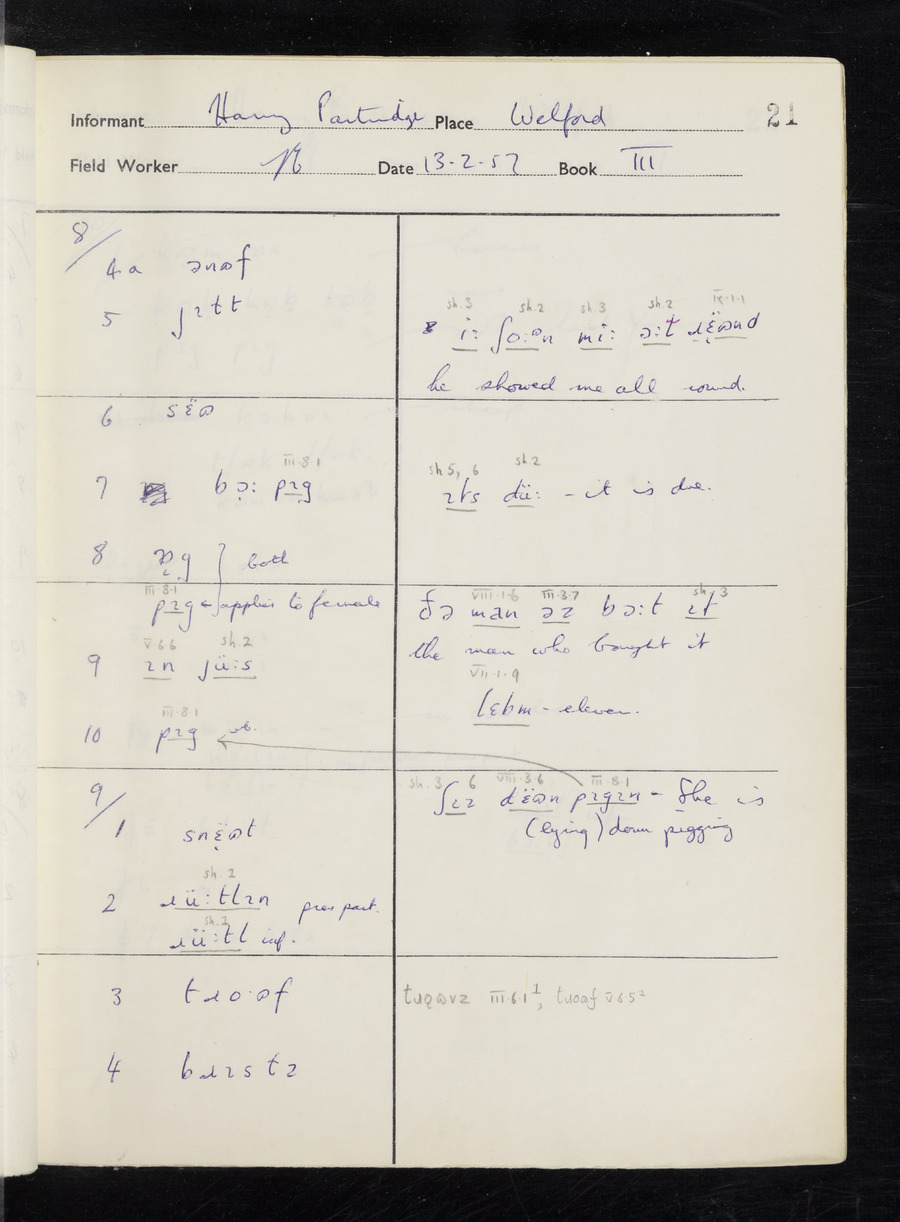 21
Informant Harry Partridge Place Welford
Field Worker Date 13-2-57 Book III
8/
4a ənɷf
5 ʃɪtt
sh.3 sh.2 sh.3 sh.2 IX·1·1
i: ʃo:ən mi: ɔ:t ɹɛ̈ɷnd
he showed me all round.
6 sɛ̈ɷ
III·8·1
7 bɔ: pɪg
sh 5, 6 sh.2
ɪts dü: - it is due.
8 both
III 8·1
pɪg ← applies to female
VIII·1·6 III·3·7 sh 3
ðə man əz bɔ:t ɪt
the man who bought it
V 6 6 sh.2
9 ɪn jü:s
VII·1·9
lɛbm - eleven.
III·8·1
10 pɪg
sh. 3 6 VIII·3·6 III·8·1
ʃɪz dɛ̈ɷn pɪgɪn - She is
(lying) down pegging
9/
1 snɛ̈ɷt
sh. 2
2 ɹü:tlɪn pres part.
sh.2
ɹü:tl inf.
3 tɹo·ɷf
tɹoɷvz III·6·1, tɹoɷf V 8 5²
4 bɹɪstɪ